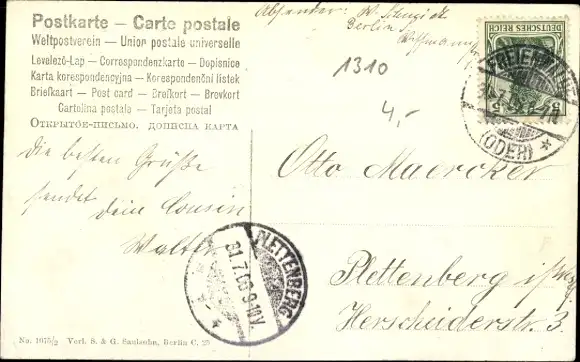 Postkarte – Carte postale
Weltpostverein – Union postale universelle
Levelező-Lap – Correspondenzkarte – Dopisnice
Karta korespondencyjna – Korespondenční lístek
Briefkaart – Post card – Brefkort – Brevkort
Cartolina postale – Tarjeta postal
Открытое-письмо. Дописна карта
Absender: W.
Berlin
1310
4,-
DEUTSCHES REICH
5 5
FREIENWALDE
(ODER)
Die besten Grüße
sendet Dein Cousin
Walter
PLETTENBERG
31.7.09 9-10V.
Otto Maercker
Plettenberg i/Westf.
Herscheiderstr. 3.
No. 1675/2 Verl. S. & G. Saulsohn, Berlin C. 25